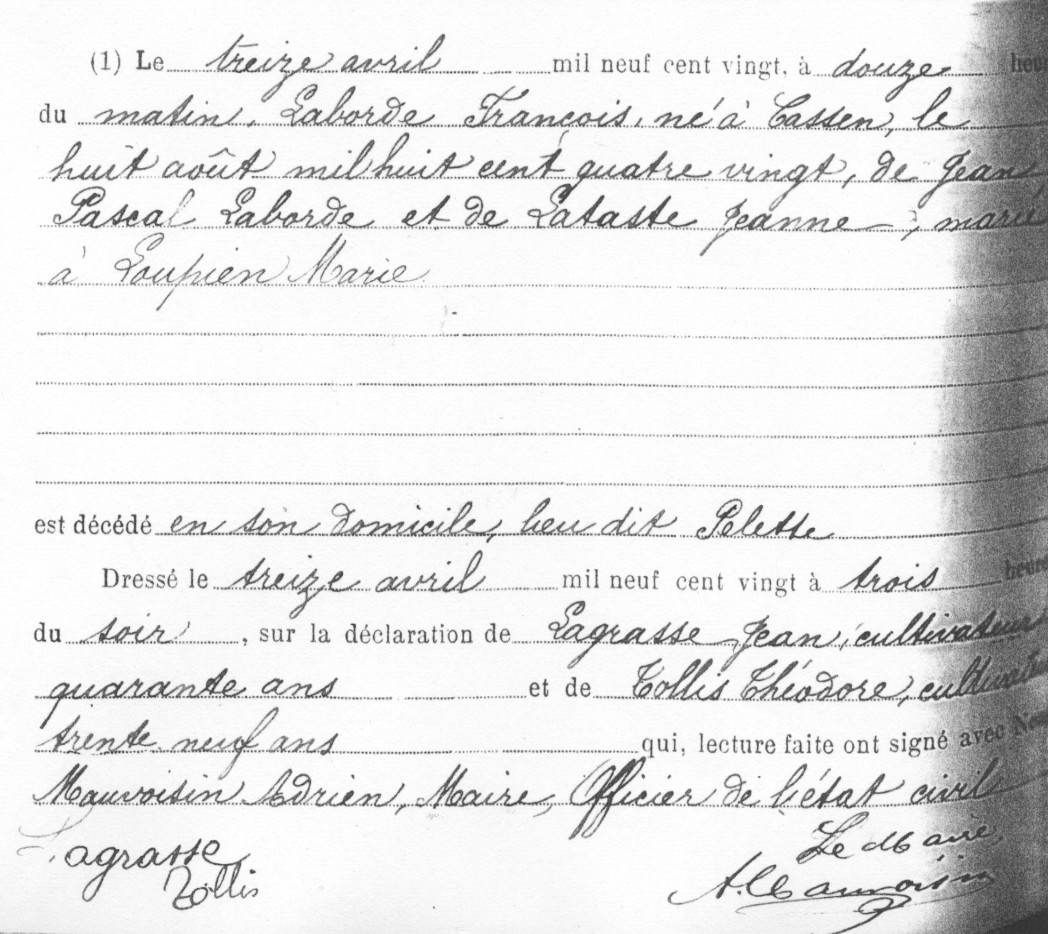 (1) Le treize avril mil neuf cent vingt, à douze heur
du matin, Laborde François, né à Cassen, le
huit août mil huit cent quatre vingt, de Jean
Pascal Laborde et de Lataste Jeanne, marié
à Loupien Marie
est décédé en son domicile, lieu dit Pelette
Dressé le treize avril mil neuf cent vingt à trois heures
du soir, sur la déclaration de Lagrasse Jean, cultivateur
quarante ans et de Tollis Théodore, cultivateur
trente neuf ans qui, lecture faite ont signé avec Nous
Mauvoisin Adrien, Maire, Officier de l'état civil
Lagrasse Le Maire,
Tollis A. Mauvoisin